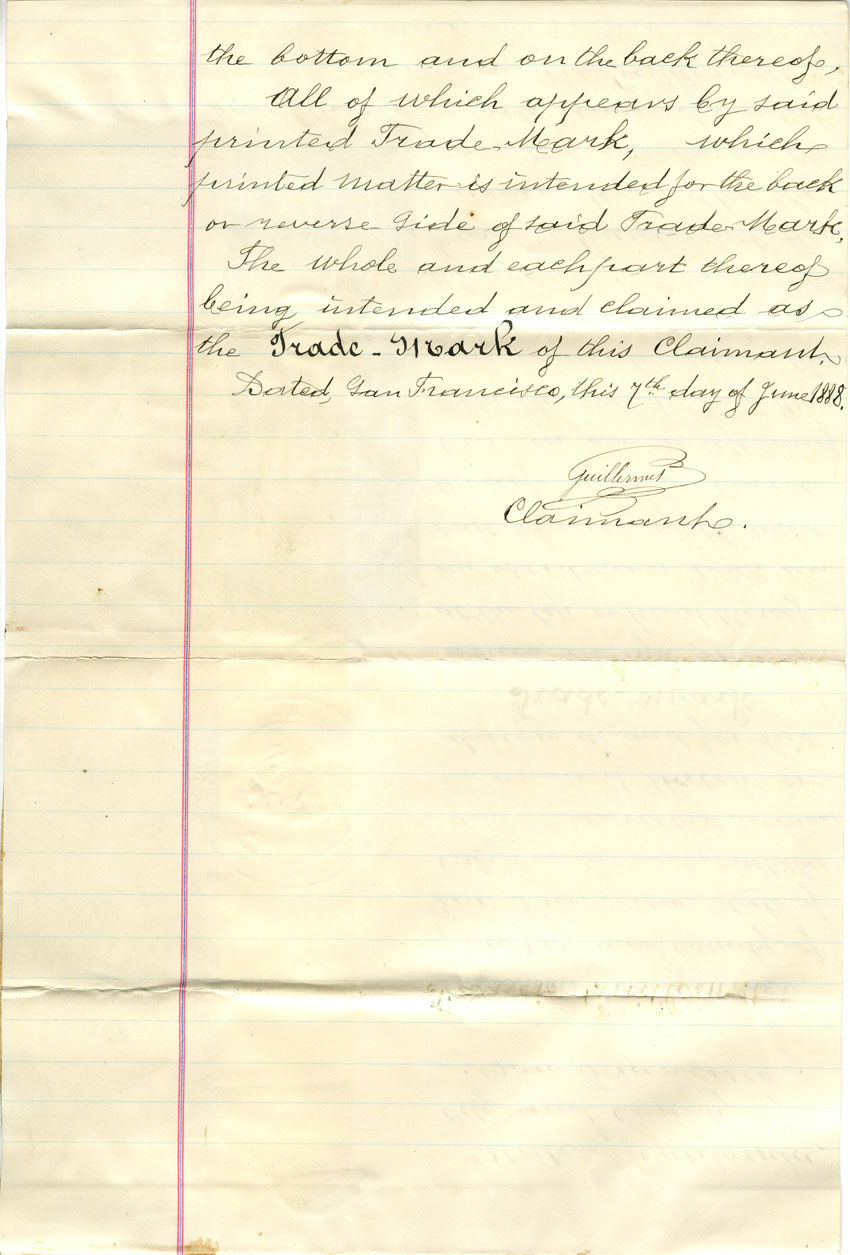 the bottom and on the back thereof,
All of which appears by said
printed Trade Mark, which
printed matter is intended for the back
or reverse Side of said Trade Mark,
The whole and each part thereof
being intended and claimed as
the Trade-Mark of this Claimant.
Dated, San Francisco, this 7th day of June 1888.
Claimant.